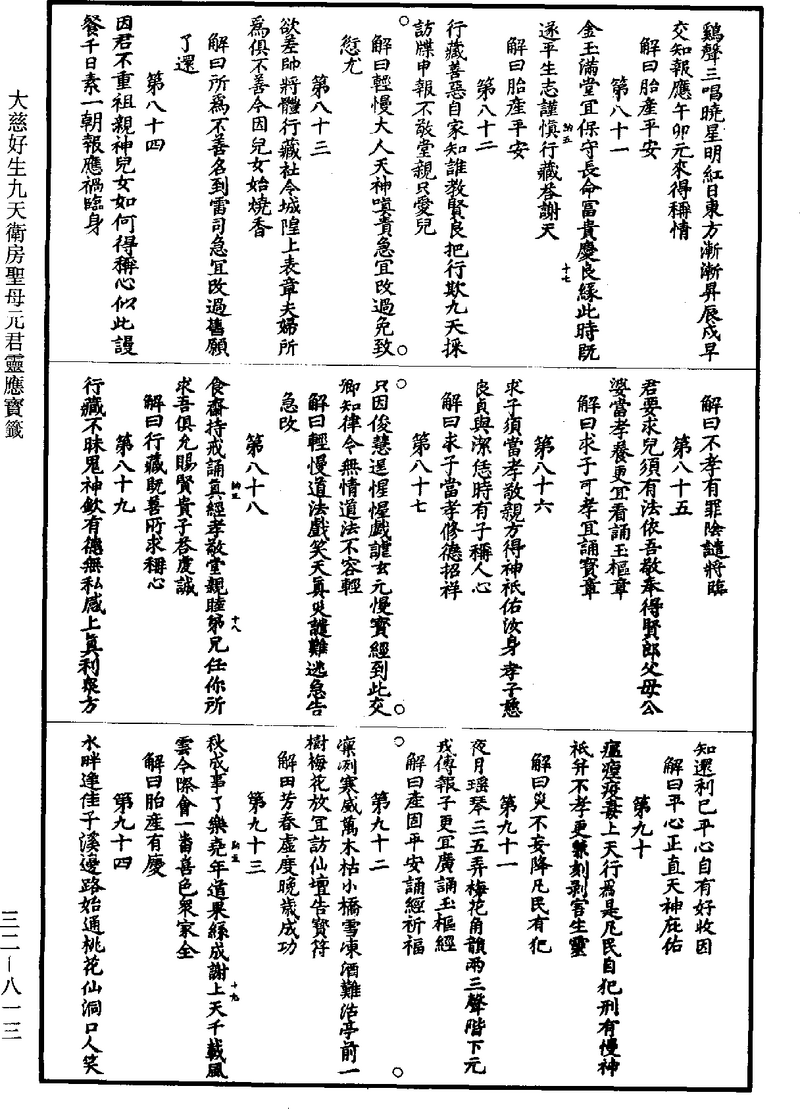 鷄聲三唱曉星明紅日東方漸漸昇辰戌早
交知報應午卯元來得稱情
解曰胎產平安
第八十一
金玉滿堂宜保守長命富貴慶良緣此時旣
遂平生志謹愼行藏荅謝天
解曰胎產平安
第八十二
行藏善惡自家知誰教賢良把行欺九天採
訪牒申報不敬堂親只愛兒
解曰輕慢大人天神嗔責急宜改過免致
愆尤
第八十三
欲差帥將體行藏社令城隍上表章夫婦所
爲俱不善今因兒女始燒香
解曰所爲不善名到雷司急宜改過舊願
了還
第八十四
因君不重祖親神兒女如何得稱心似此謾
餐千日素一朝報應禍臨身
解曰不孝有罪陰譴將臨
第八十五
君要求兒須有法依吾敬奉得賢郎父母公
婆當孝養更宜看誦玉樞章
解曰求子可孝宜誦寶章
第八十六
求子須當孝敬親方得神祇佑汝身孝子慈
良貞與潔恁時有子稱人心
解曰求子當孝修德招祥
第八十七
只因俊慧逞惺惺戲謔玄元慢寶經到此交
卿知律令無情道法不容輕
解曰輕慢道法戲笑天真災譴難逃急告
急改
第八十八
食齋持戒誦真經孝敬堂親睦弟兄任你所
求吾俱允賜賢貴子荅虔誠
解曰行藏旣善所求稱心
第八十九
行藏不昧鬼神欽有德無私感上真利衆方
知還利己平心自有好收因
解曰平心正直天神庇佑
第九十
瘟㾮疫毒上天行爲是凡民自犯刑有慢神
祇并不孝更兼刻剥害生靈
解曰災不妄降凡民有犯
第九十一
夜月瑶琴三五弄梅花角韻兩三聲階下元
戎傳報子更宜廣誦玉樞經
解曰產因平安誦經祈福
第九十二
凜冽寒威萬木枯小橋雪凍酒難沽亭前一
樹梅花放宜訪仙壇告寶符
解曰芳春虛度晚歲成功
第九十三
秋成事了樂堯年道果緣成謝上天千載風
雲今際會一番喜色衆家全
解曰胎產有慶
第九十四
水畔逢佳子溪邊路始通桃花仙洞口人笑
大慈好生九天衛房聖母元君靈應寶籤
三二—八一三